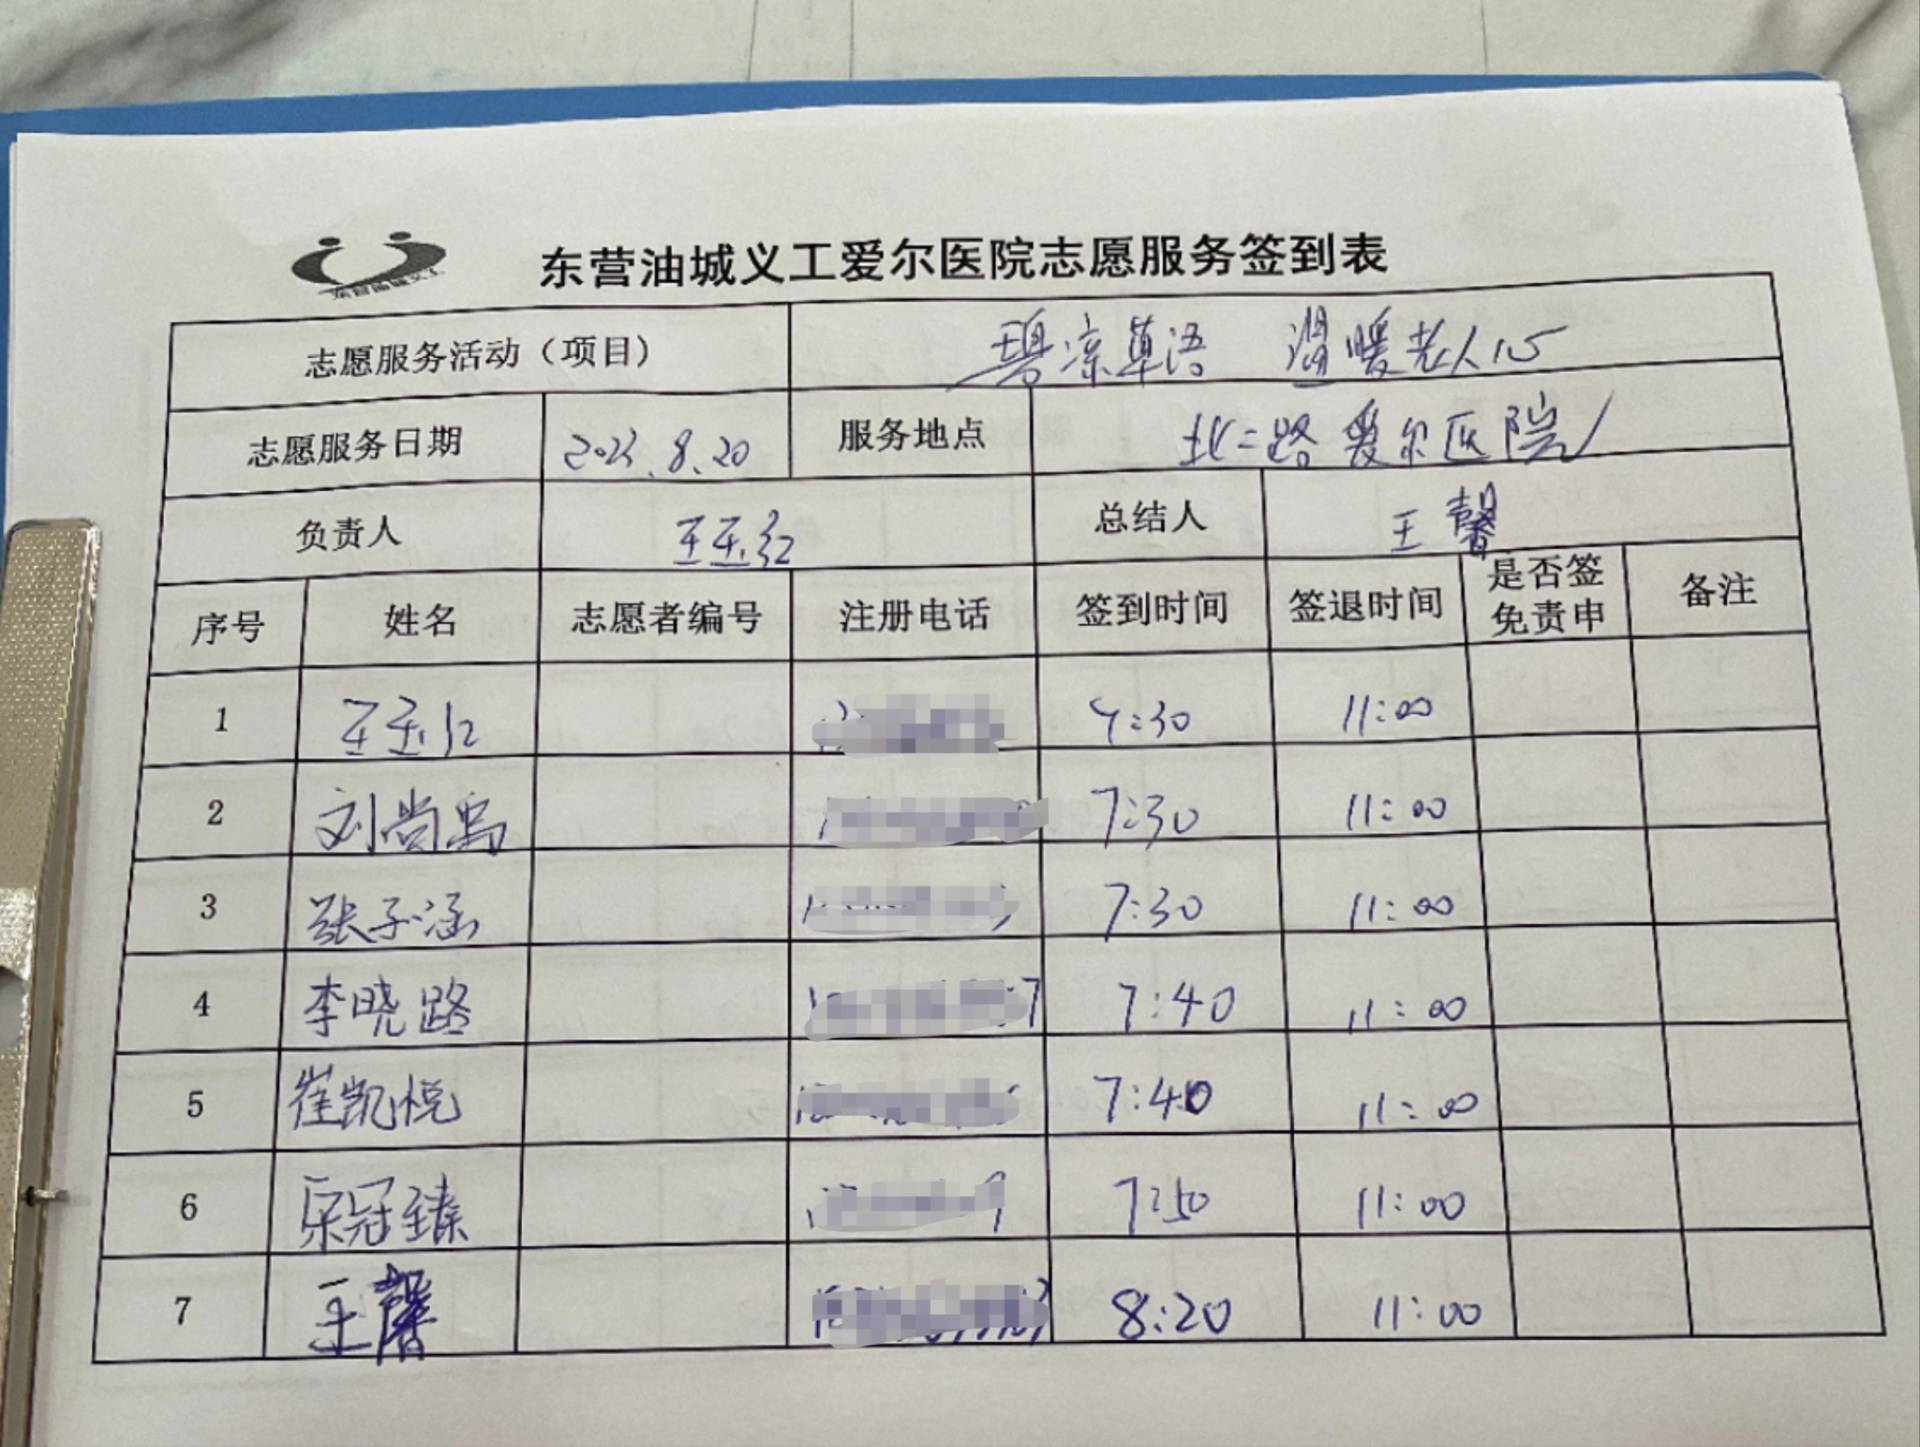 东营油城义工
东营油城义工爱尔医院志愿服务签到表
志愿服务活动（项目） 碧凉草语 温暖老人心
志愿服务日期 2023.8.20 服务地点 北二路爱尔医院
负责人 王玉红 总结人 王馨
序号 姓名 志愿者编号 注册电话 签到时间 签退时间 是否签免责申 备注
1 王玉红 7:30 11:00
2 刘尚 7:30 11:00
3 张子涵 7:30 11:00
4 李晓路 7:40 11:00
5 崔凯悦 7:40 11:00
6 冠臻 7:50 11:00
7 王馨 8:20 11:00